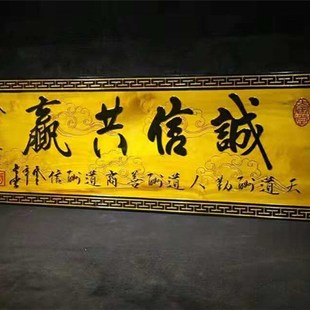 誠信共贏
天道酬勤人道酬善商道酬信